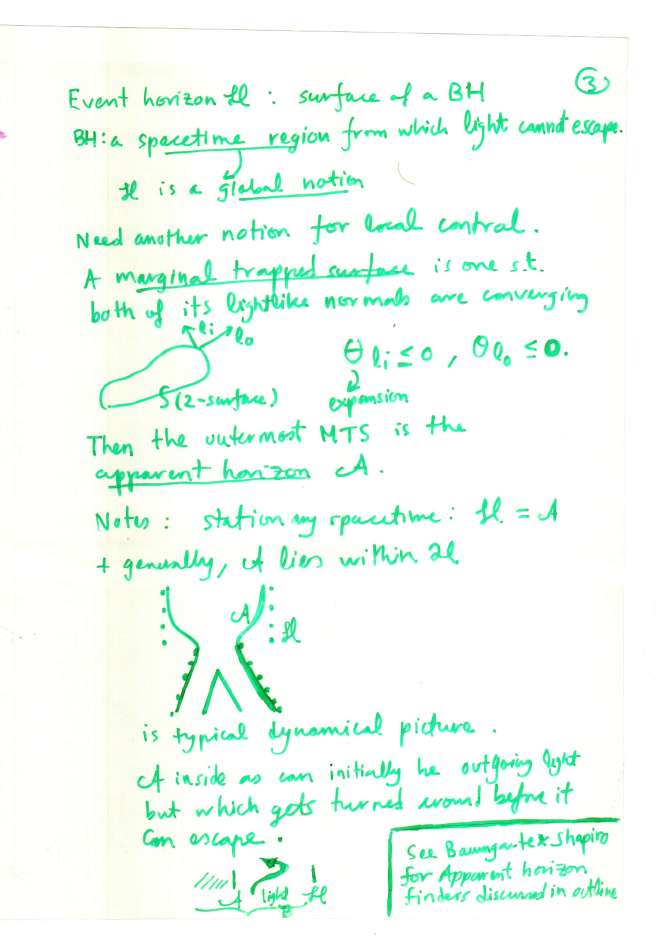 ③
Event horizon ℋ : surface of a BH
BH: a spacetime region from which light cannot escape.
ℋ is a global notion
Need another notion for local control.
A marginal trapped surface is one s.t.
both of its lightlike normals are converging
li lo
θ li ≤ 0 , θ lo ≤ 0.
S (2-surface) expansion
Then the outermost MTS is the
apparent horizon A.
Notes : stationary spacetime : ℋ = A
+ generally, A lies within ℋ
A
ℋ
is typical dynamical picture .
A inside as can initially be outgoing light
but which gets turned around before it
can escape .
A light ℋ
See Baumgarte & Shapiro
for Apparent horizon
finders discussed in outline